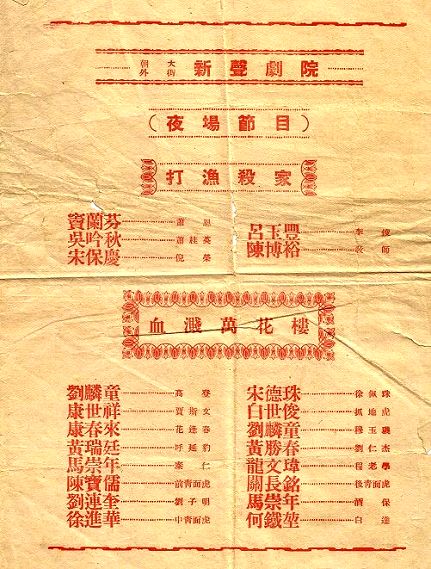 朝外大街 新聲劇院
(夜場節目)
打漁殺家
竇蘭芬……蕭恩 呂玉豐……李俊
吳吟秋……蕭桂英 陳博裕……教師
宋保慶……倪榮
血濺萬花樓
劉麟童……高登 宋德珠……徐佩珠
康世祥……賈斯文 白世俊……抓地虎
康春來……花逢春 劉麟童……穆玉璣
黃瑞廷……呼延豹 黃勝春……劉仁杰
馬崇年……秦仁 龍文瑋……程老學
陳寶儒……前青面虎 關長銘……後青面虎
劉連奎……劉子明 馬崇年……酒保
徐進華……中青面虎 何鐵堃……白達